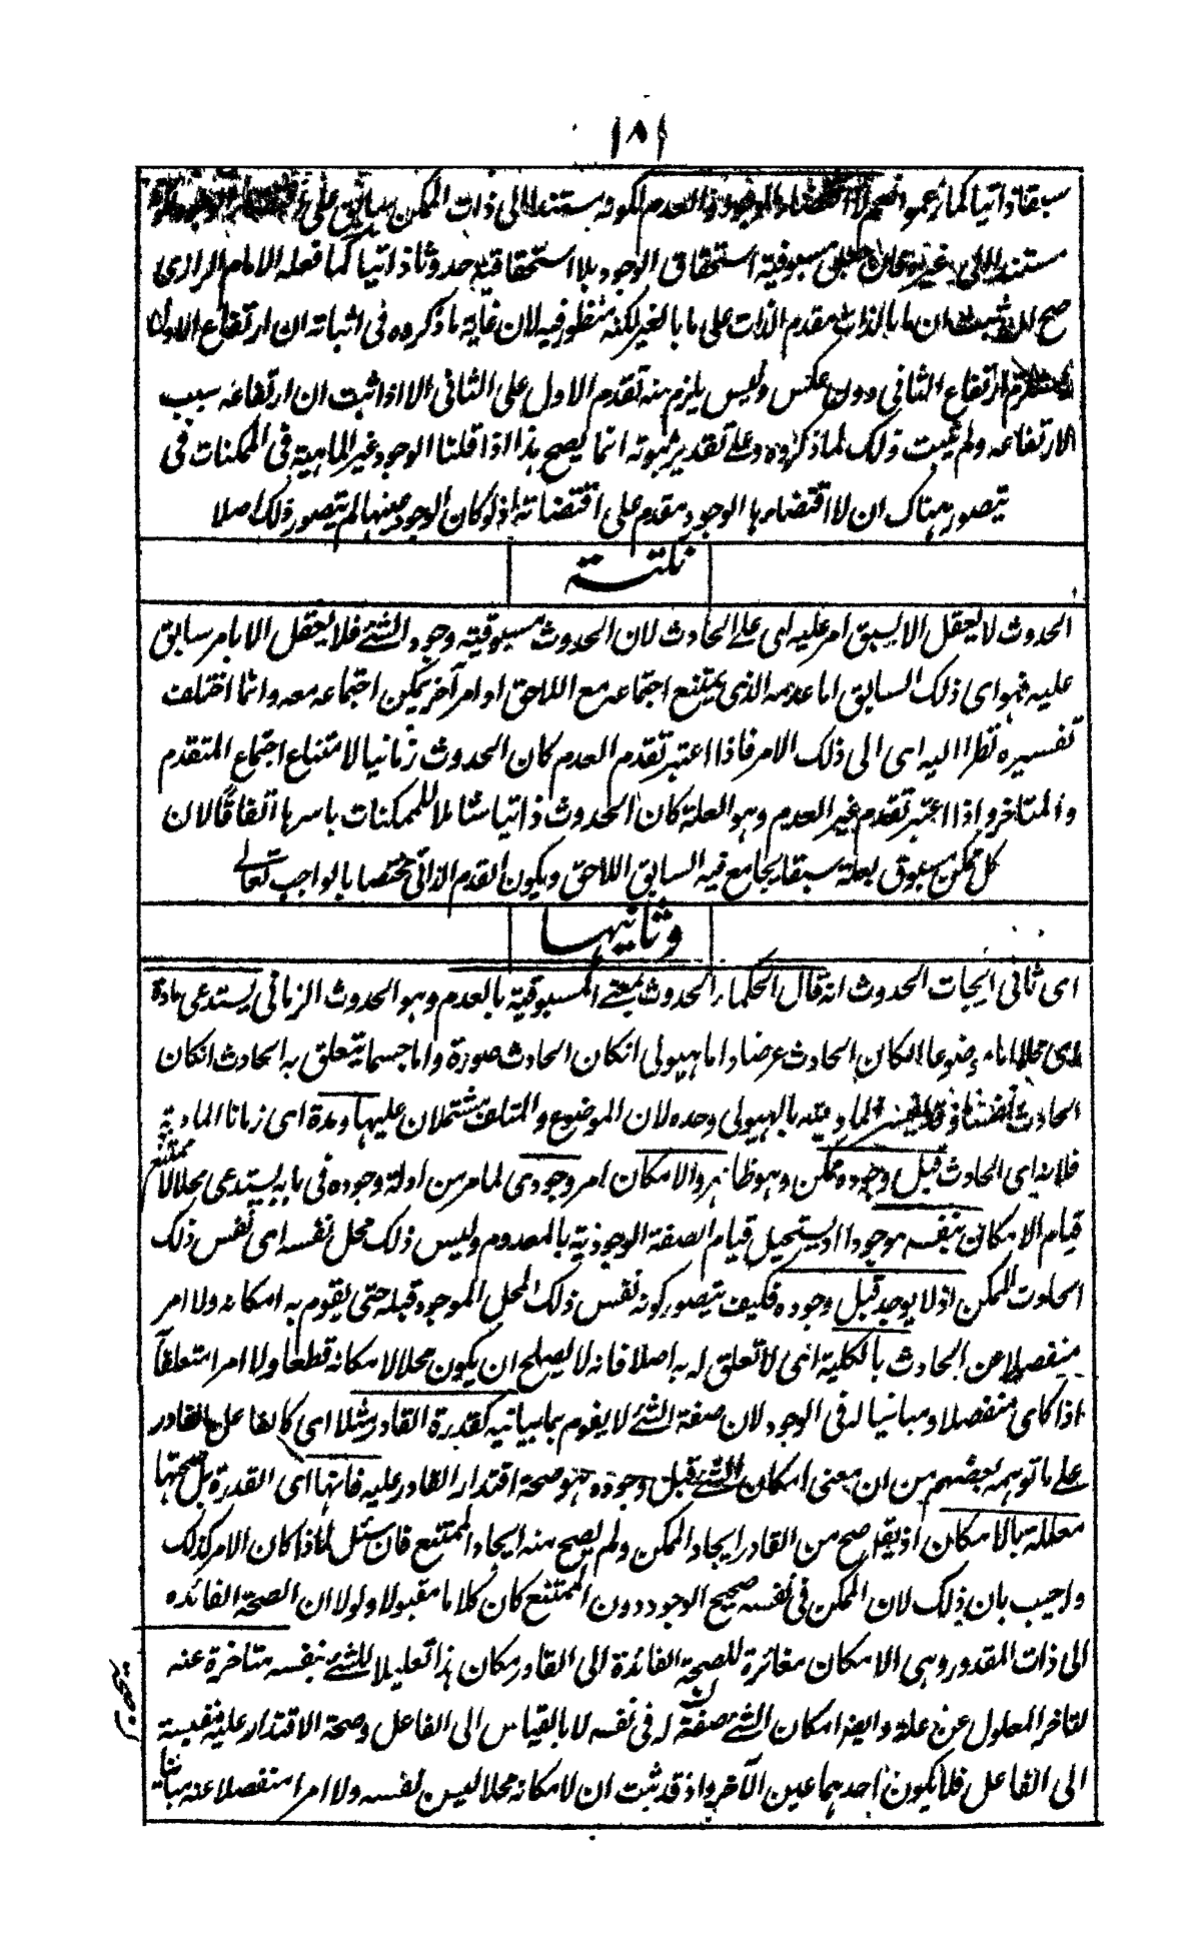 ١٨١
سبقا ذاتيا كما زعموا لكونه مستندا الى ذات الممكن سابق على
مستند الى غيره مسبوقية استحقاق الوجود بلا استحقاقية حدوثا ذاتيا كما فعله الامام الرازى
صح ان ما بالذات مقدم الذات على ما بالغير لكنه منظور فيه لان غاية ما ذكروه فى اثباته ان ارتفاع الاول
ارتفاع الثانى دون عكس وليس يلزم منه تقدم الاول على الثانى الا اذا ثبت ان ارتفاعه سبب
لارتفاعه ولم يثبت ذلك لما ذكروه وعلى تقدير ثبوته انما يصح هذا اذا قلنا الوجود غير الماهية فى الممكنات فى
تيصور هناك ان لا اقتضاءها الوجود مقدم على اقتضائه اذ لو كان الوجود عينها لم يتصور ذلك اصلا
نكتة
الحدوث لا يعقل الا لسبق امر عليه اى على الحادث لان الحدوث مسبوقية وجود الشئ فلا يعقل الا بامر سابق
عليه فهو اى ذلك السابق اما عدمه الذى يمتنع اجتماعه مع اللاحق او امر آخر يمكن اجتماعه معه وانما اختلف
تفسيره نظرا اليه اى الى ذلك الامر فاذا اعتبر تقدم العدم كان الحدوث زمانيا لامتناع اجتماع المتقدم
والمتاخر واذا اعتبر تقدم غير العدم وهو العلة كان الحدوث ذاتيا شاملا للممكنات باسرها اتفاقا لان
كل ممكن مسبوق بعلة سبقا يجامع فيه السابق اللاحق ويكون القدم الذاتى مختصا بالواجب تعالى
وثانيها
اى ثانى ابحاث الحدوث انه قال الحكماء الحدوث بمعنى المسبوقية بالعدم وهو الحدوث الزمانى يستدعى مادة
اى محلا اما موضوعا ان كان الحادث عرضا واما هيولى ان كان الحادث صورة واما جسما يتعلق به الحادث ان كان
الحادث نفسا وقد يفسر المادية بالهيولى وحده لان الموضوع والمتعلق مشتملان عليها ومدة اى زمانا المادية
فلانه اى الحادث قبل وجوده ممكن وهو ظاهر والامكان امر وجودى لما مر من ادلة وجوده فى بابه يستدعى محلا لامتناع
قيام الامكان بنفسه موجودا اذ يستحيل قيام الصفة الوجودية بالمعدوم وليس ذلك محل نفسه اى نفس ذلك
الحادث الممكن اذ لا يوجد قبل وجوده فكيف يتصور كونه نفس ذلك المحل الموجود قبله حتى يقوم به امكانه ولا امر
منفصلا عن الحادث بالكلية اى لا تعلق له به اصلا فانه لا يصلح ان يكون محلا لامكانه قطعا ولا امرا متعلقا
اذا كان منفصلا ومباينا له فى الوجود لان صفة الشئ لا يقوم بما يباينه كقدرة القادر مثلا اى كالفاعل القادر
على ما توهمه بعضهم من ان معنى امكان الشئ قبل وجوده هو صحة اقتدار القادر عليه فانها اى القدرة بل صحتها
معللة بالامكان اذ يقال صح من القادر ايجاد الممكن ولم يصح منه ايجاد الممتنع فان سئل لماذا كان الامر كذلك
واجيب بان ذلك لان الممكن فى نفسه صحيح الوجود دون الممتنع كان كلاما مقبولا ولولا ان الصحة العائدة
الى ذات المقدور وهى الامكان مغائرة للصحة العائدة الى القادر لكان هذا تعليلا للشئ بنفسه متاخرة عنه
لتاخر المعلول عن علته وايضا امكان الشئ صفة له فى نفسه لا بالقياس الى الفاعل وصحة الاقتدار عليه مقيسة
الى الفاعل فلا يكون احدهما عين الآخر واذ قد ثبت ان لامكانه محلا ليس نفسه ولا امرا منفصلا عنه مباينا